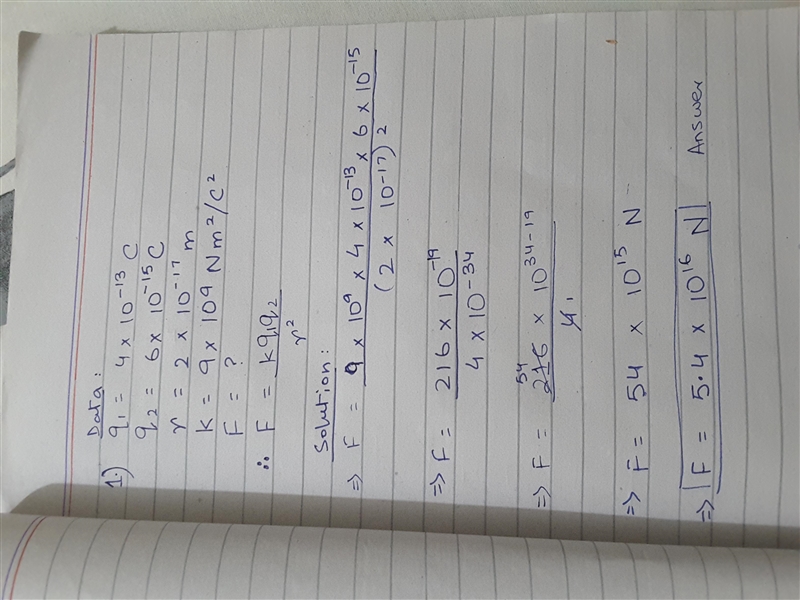 Data:
1.) q₁ = 4 x 10⁻¹³ C
q₂ = 6 x 10⁻¹⁵ C
r = 2 x 10⁻¹⁷ m
K = 9 x 10⁹ N m²/C²
F = ?
∴ F = Kq₁q₂ / r²
Solution:
⇒ F = 9 x 10⁹ x 4 x 10⁻¹³ x 6 x 10⁻¹⁵ / (2 x 10⁻¹⁷)²
⇒ F = 216 x 10⁻¹⁹ / 4 x 10⁻³⁴
⇒ F = 54 216 x 10³⁴⁻¹⁹ / 4₁
⇒ F = 54 x 10¹⁵ N
⇒ F = 5.4 x 10¹⁶ N Answer